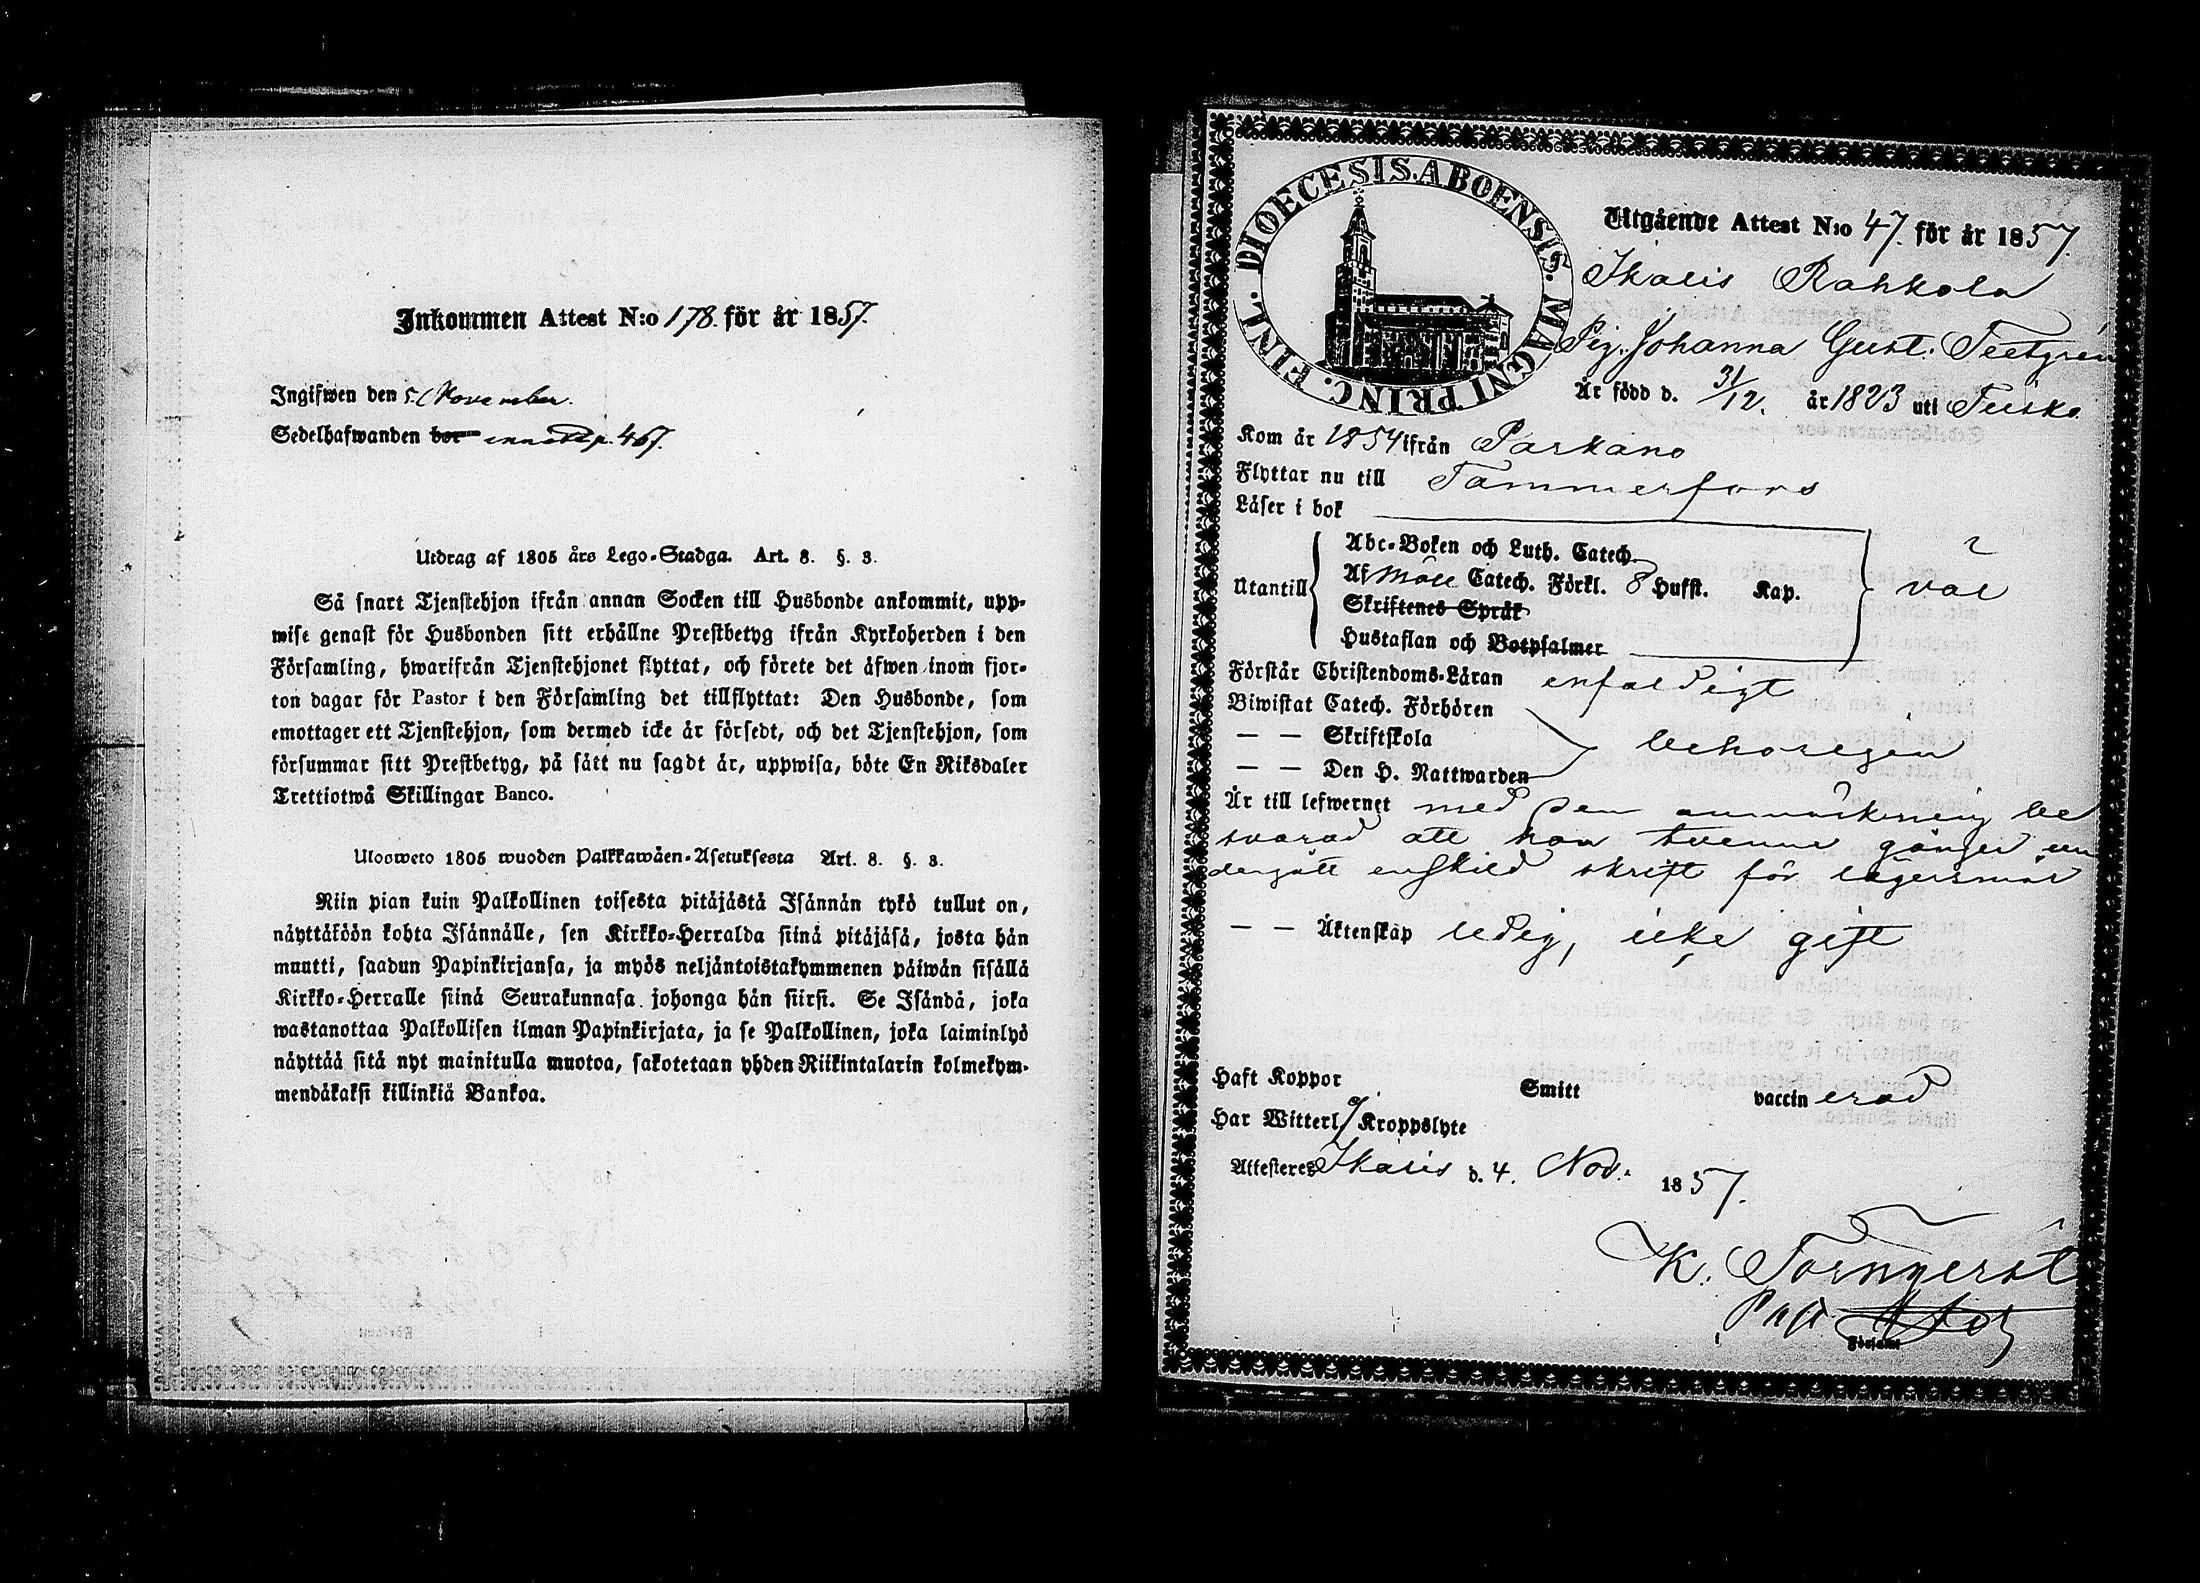 Inkommen Attest N:o 178. för år 1857.
Ingifwen den 5. November.
Sedelhafwanden bor p. 467.
Utdrag af 1805 års Lego-Stadga. Art. 8. §. 3.
Så snart Tjenstehjon ifrån annan Socken till Husbonde ankommit, upp-
wise genast för Husbonden sitt erhållne Prestbetyg ifrån Kyrkoherden i den
Församling, hwarifrån Tjenstehjonet flyttat, och förete det äfwen inom fjor-
ton dagar för Pastor i den Församling det tillflyttat: Den Husbonde, som
emottager ett Tjenstehjon, som dermed icke är försedt, och det Tjenstehjon, som
försummar sitt Prestbetyg, på sätt nu sagdt är, uppwisa, böte En Riksdaler
Trettiotwå Skillingar Banco.
Ulosweto 1805 wuoden Palkkawäen-Asetuksesta Art. 8. §. 3.
Niin pian kuin Palkollinen toisesta pitäjästä Isännän tykö tullut on,
näyttäköön kohta Isännälle, sen Kirkko-Herralda siinä pitäjäsä, josta hän
muutti, saadun Papinkirjansa, ja myös neljäntoistakymmenen päiwän sisällä
Kirkko-Herralle siinä Seurakunnasa johonga hän siirsi. Se Isändä, joka
wastanottaa Palkollisen ilman Papinkirjata, ja se Palkollinen, joka laiminlyö
näyttää sitä nyt mainitulla muotoa, sakotetaan yhden Riikintalarin kolmekym-
mendäkaksi killinkiä Bankoa.
DIOECESIS. ABOENSIS. MAGNI PRINC. FINL.
Utgående Attest N:o 47. för år 1857.
Ikalis Rahkola
Pig. Johanna Gust. Teetgrén
Är född d. 31/12. år 1823 uti Teisko
Kom år 1854 ifrån Parkano
Flyttar nu till Tammerfors
Läser i bok
Abc-Boken och Luth. Catech.
Utantill Af Möll Catech. Förkl. 8 Hufst. Kap. väl
Skriftenes Språk
Hustaflan och Botpsalmer
Förstår Christendoms-Läran enfaldigt
Biwistat Catech. Förhören
— — Skriftskola behörigen
— — Den H. Nattwarden
Är till lefwernet med den anmärkning be
svarad att hon tvenne gånger un
dergått enskild skrift för lägersmål
— — Äktenskap ledig, icke gift
Haft Koppor Smitt vaccinerad
Har Witterl. Kroppslyte
Attesteres Ikalis d. 4. Nov. 1857.
K. Tornqvist
Församl